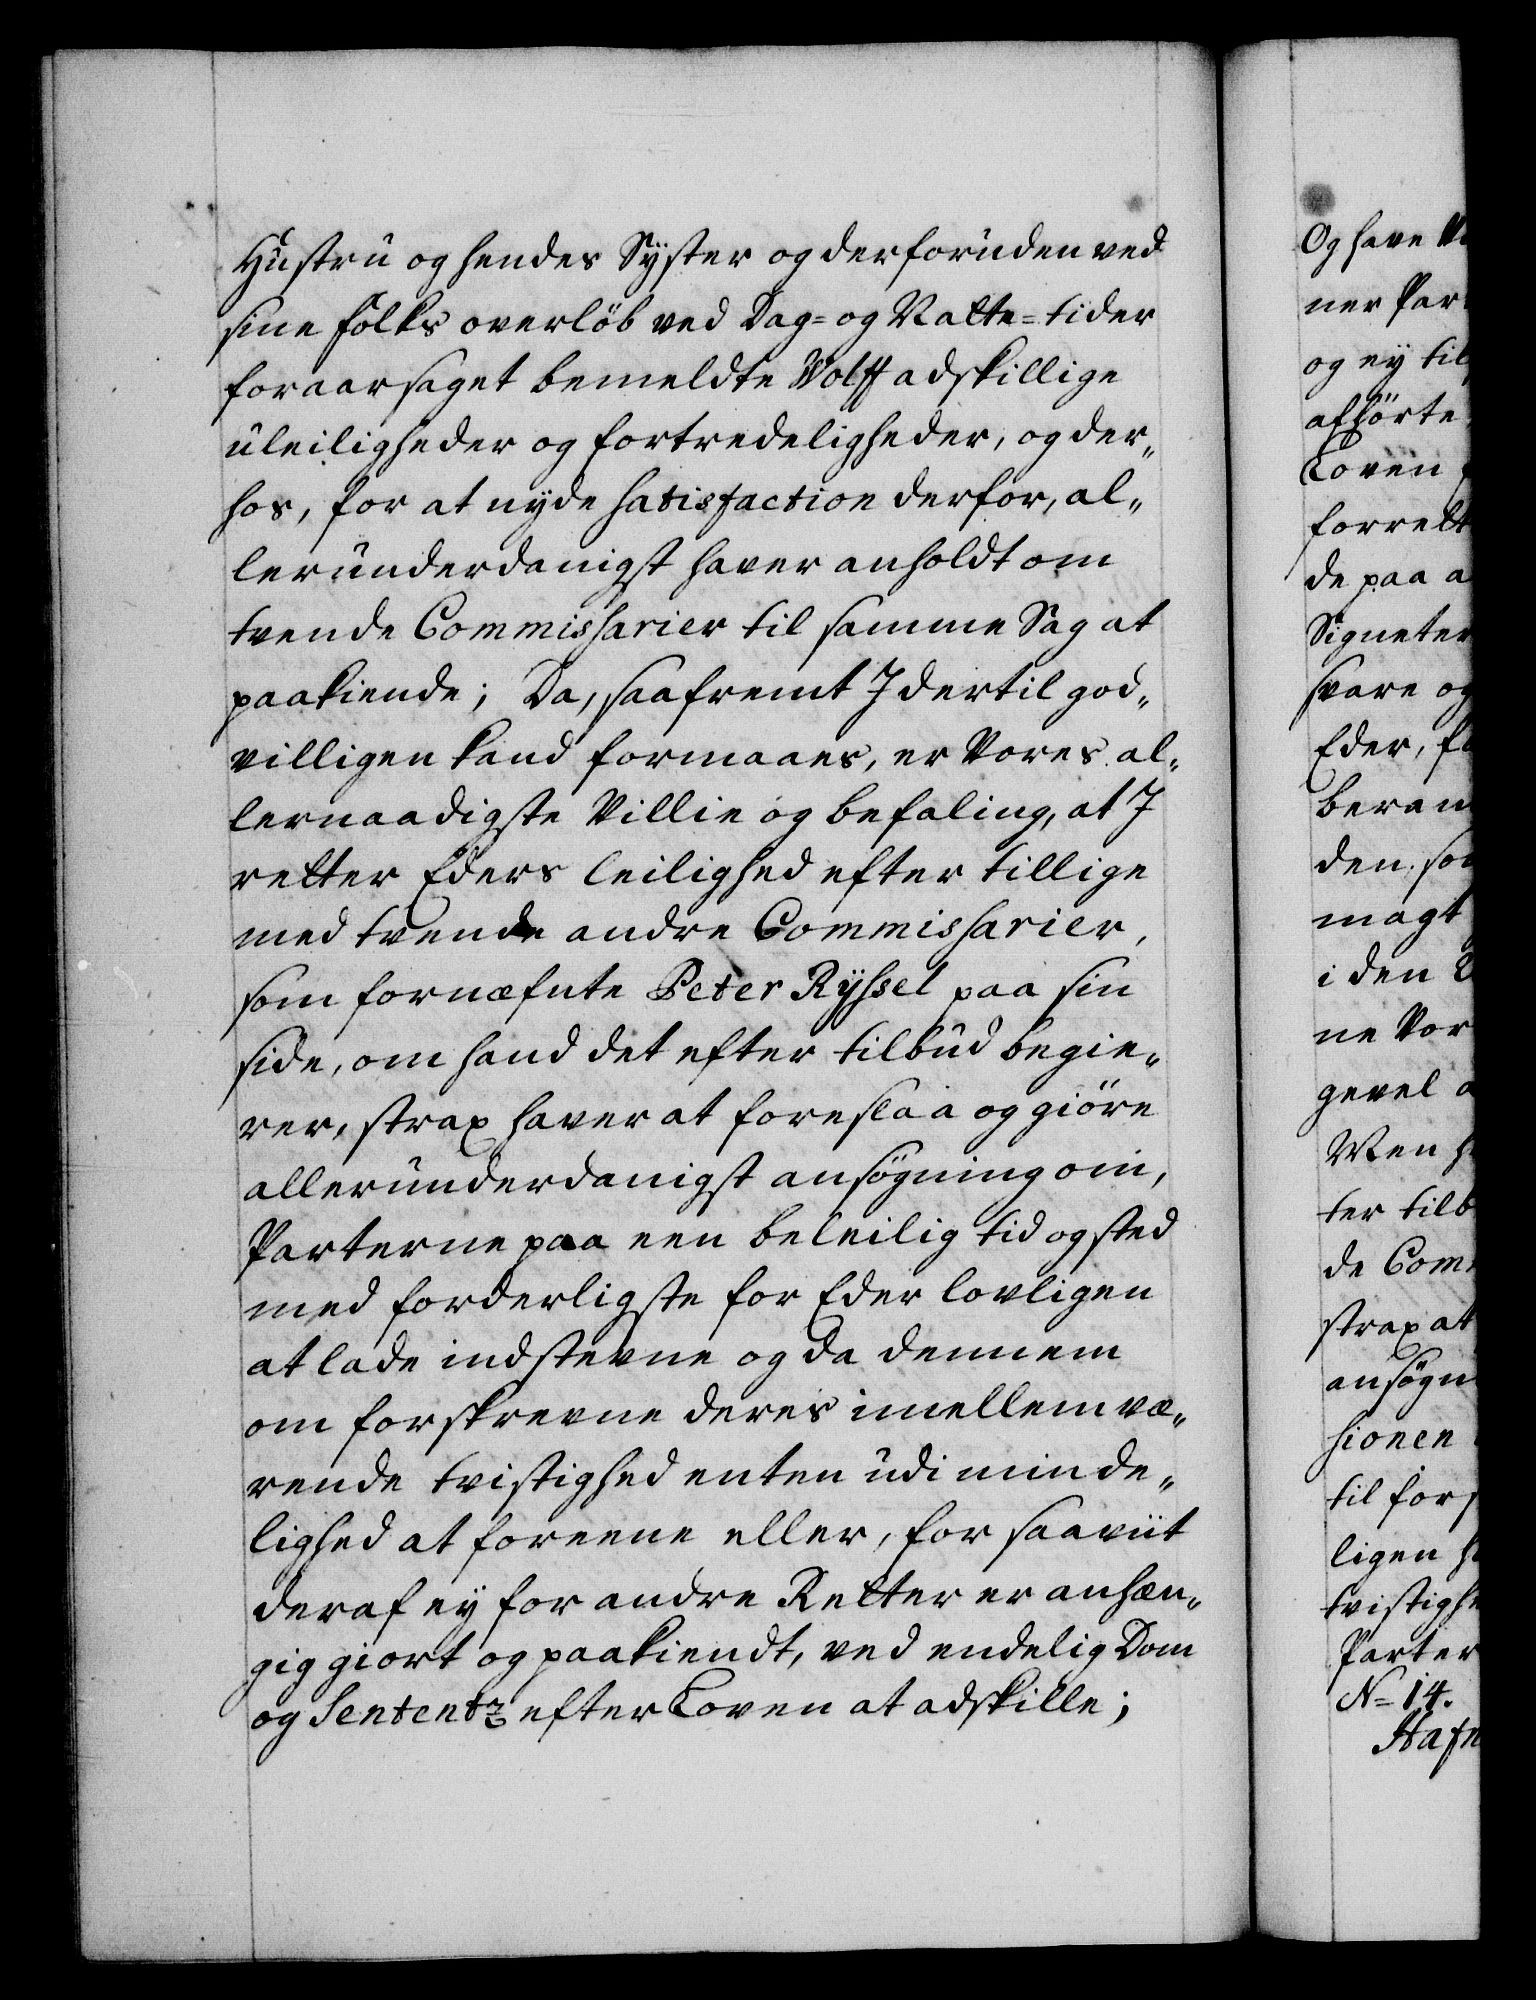 Hustru og hendes Syster og derforuden ved
sine folks overløb ved Dag= og Natte=tider
foraarsaget bemeldte Wolff adskillige
uleiligheder og fortredeligheder, og der„
hos, for at nyde satisfaction derfor, al„
lerunderdanigst haver anholdt om
tvende Commissarier til samme Sag at
paakiende; Da, saafremt I dertil god„
villigen kand formaaes, er Vores al„
lernaadigste Villie og befaling, at I
retter Eders leilighed efter tillige
med tvende andre Commissarier,
som fornæfnte Peter Ryssel paa sin
side, om hand det efter tilbud begie„
rer, strax haver at foreslaa og giøre
allerunderdanigst ansøgning om,
Parterne paa een beleilig tid og sted
med forderligste for Eder lovligen
at lade indstevne og da dennem
om forskrevne deres imellem væ„
rende tvistighed enten udi minde„
lighed at foreene eller, for saaviit
deraf ey for andre Retter er anhæn„
gig giort og paakiendt, ved endelig Dom
og Sententz efter Loven at adskille;
Og have
ner Par
og ey til
afhørte
Loven
forrett
de paa a
Signeter
svare og
Eder, f
beram
den, so
magt
i den
ne Vor
gevel
Men h
ter tilb
de Com
strax at
ansøgn
sionen
til fors
ligen h
tvistighe
Parter
N= 14.
Hafn